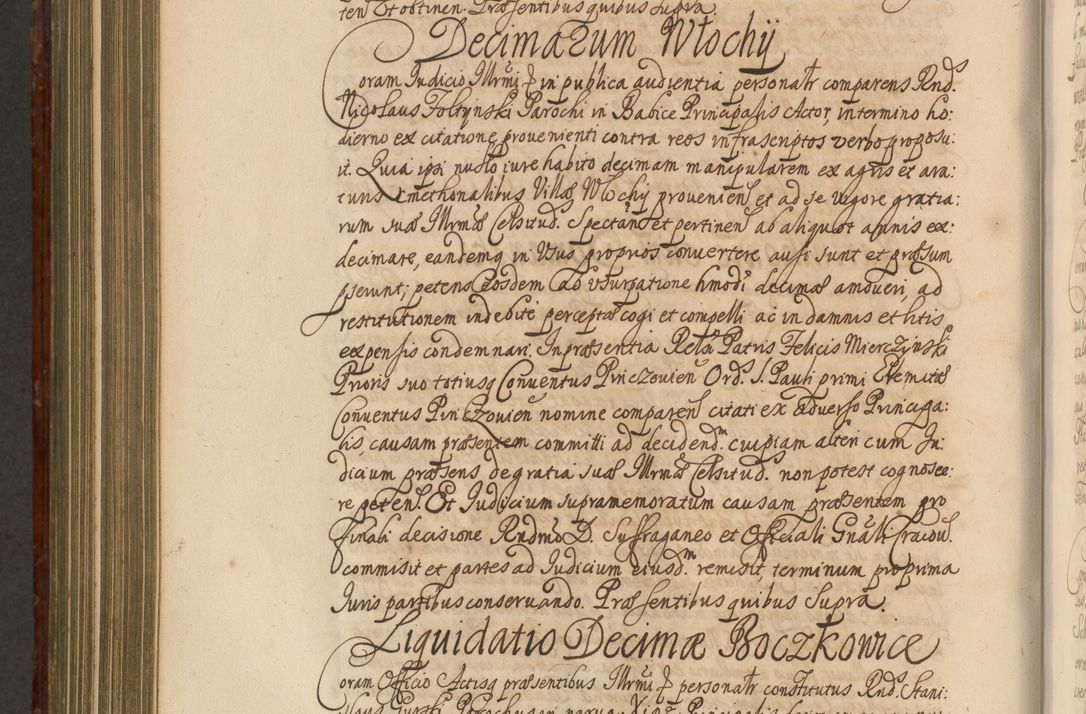 ten Et obtinen. Præsentibus quibus supra.
Decimarum Włochÿ
Coram Iudicio Illrmi ꝑ in publica audientia personalr comparens Rnd.
Nicolaus Foltynski Parochi in Babice Principalis Actor, in termino ho:
dierno ex citatione provenienti contra reos infrascriptos verbo proposu:
it. Quia ipsi nullo iure habito decimam manipularem ex agris et ara:
turis Cmethonalibus Villæ Włochÿ provenien et ad se vigore gratia:
rum suæ Illrmæ Celsitud. Spectan et pertinen ab aliquot annis ex:
decimare, eandemq in Usus proprios convertere ausi sunt et præsum
pserunt; petens Eosdem ab usurpatione hmodi decimæ amoveri, ad
restitutionem indebite perceptæ cogi et compelli ac in damnis et litis
expensis condemnari. In præsentia Relsi Patris Felicis Mierczÿnski
Prioris suo totiusq Conventus Pinczovien Ord. S. Pauli primi Eremitæ
Conventus Pinczovien nomine comparen citati ex adverso Principa:
lis, causam præsentem committi ad decidend. cuipiam alteri cum Iu:
dicium præsens de gratia suæ Illrmæ Celsitud. non potest cognosce:
re peten. Et Iudicium supramemoratum causam præsentem pro
finali decisione Rndmo D. Suffraganeo et Officiali Gnali Cracovi.
commisit et partes ad Iudicium eiusdm remisit, terminum pro prima
Iuris partibus conservando. Præsentibus quibus supra.
Liquidatio Decimæ Boczkowice
Coram Officio Actisq præsentibus Illrmi ꝑ personalr constitutus Rnd. Stani: